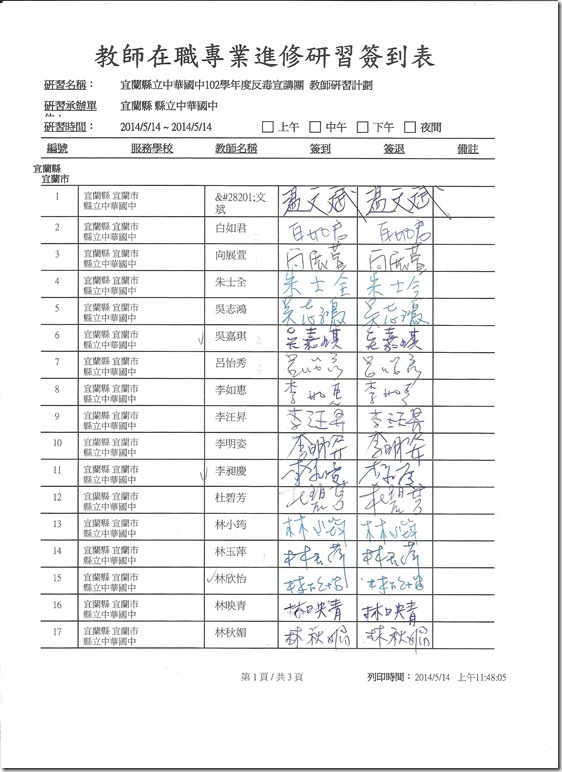 教師在職專業進修研習簽到表
研習名稱： 宜蘭縣立中華國中102學年度反毒宣講團 教師研習計劃
研習承辦單 宜蘭縣 縣立中華國中
研習時間： 2014/5/14 ~ 2014/5/14 □ 上午 □ 中午 □ 下午 □ 夜間
編號 服務學校 教師名稱 簽到 簽退 備註
宜蘭縣
宜蘭市
1 宜蘭縣 宜蘭市 &#28201;文
縣立中華國中 斌 溫文斌 溫文斌
2 宜蘭縣 宜蘭市 白如君 白如君 白如君
縣立中華國中
3 宜蘭縣 宜蘭市 向展萱 向展萱 向展萱
縣立中華國中
4 宜蘭縣 宜蘭市 朱士全 朱士全 朱士全
縣立中華國中
5 宜蘭縣 宜蘭市 吳志鴻 吳志鴻 吳志鴻
縣立中華國中
6 宜蘭縣 宜蘭市 吳嘉琪 吳嘉琪 吳嘉琪
縣立中華國中
7 宜蘭縣 宜蘭市 呂怡秀 呂怡秀 呂怡秀
縣立中華國中
8 宜蘭縣 宜蘭市 李如惠 李如惠 李如惠
縣立中華國中
9 宜蘭縣 宜蘭市 李汪昇 李汪昇 李汪昇
縣立中華國中
10 宜蘭縣 宜蘭市 李明姿 李明姿 李明姿
縣立中華國中
11 宜蘭縣 宜蘭市 李昶慶 李昶慶 李昶慶
縣立中華國中
12 宜蘭縣 宜蘭市 杜碧芳 杜碧芳 杜碧芳
縣立中華國中
13 宜蘭縣 宜蘭市 林小筠 林小筠 林小筠
縣立中華國中
14 宜蘭縣 宜蘭市 林玉萍 林玉萍 林玉萍
縣立中華國中
15 宜蘭縣 宜蘭市 林欣怡 林欣怡 林欣怡
縣立中華國中
16 宜蘭縣 宜蘭市 林映青 林映青 林映青
縣立中華國中
17 宜蘭縣 宜蘭市 林秋媚 林秋媚 林秋媚
縣立中華國中
第 1 頁 / 共 3 頁 列印時間： 2014/5/14 上午11:48:05